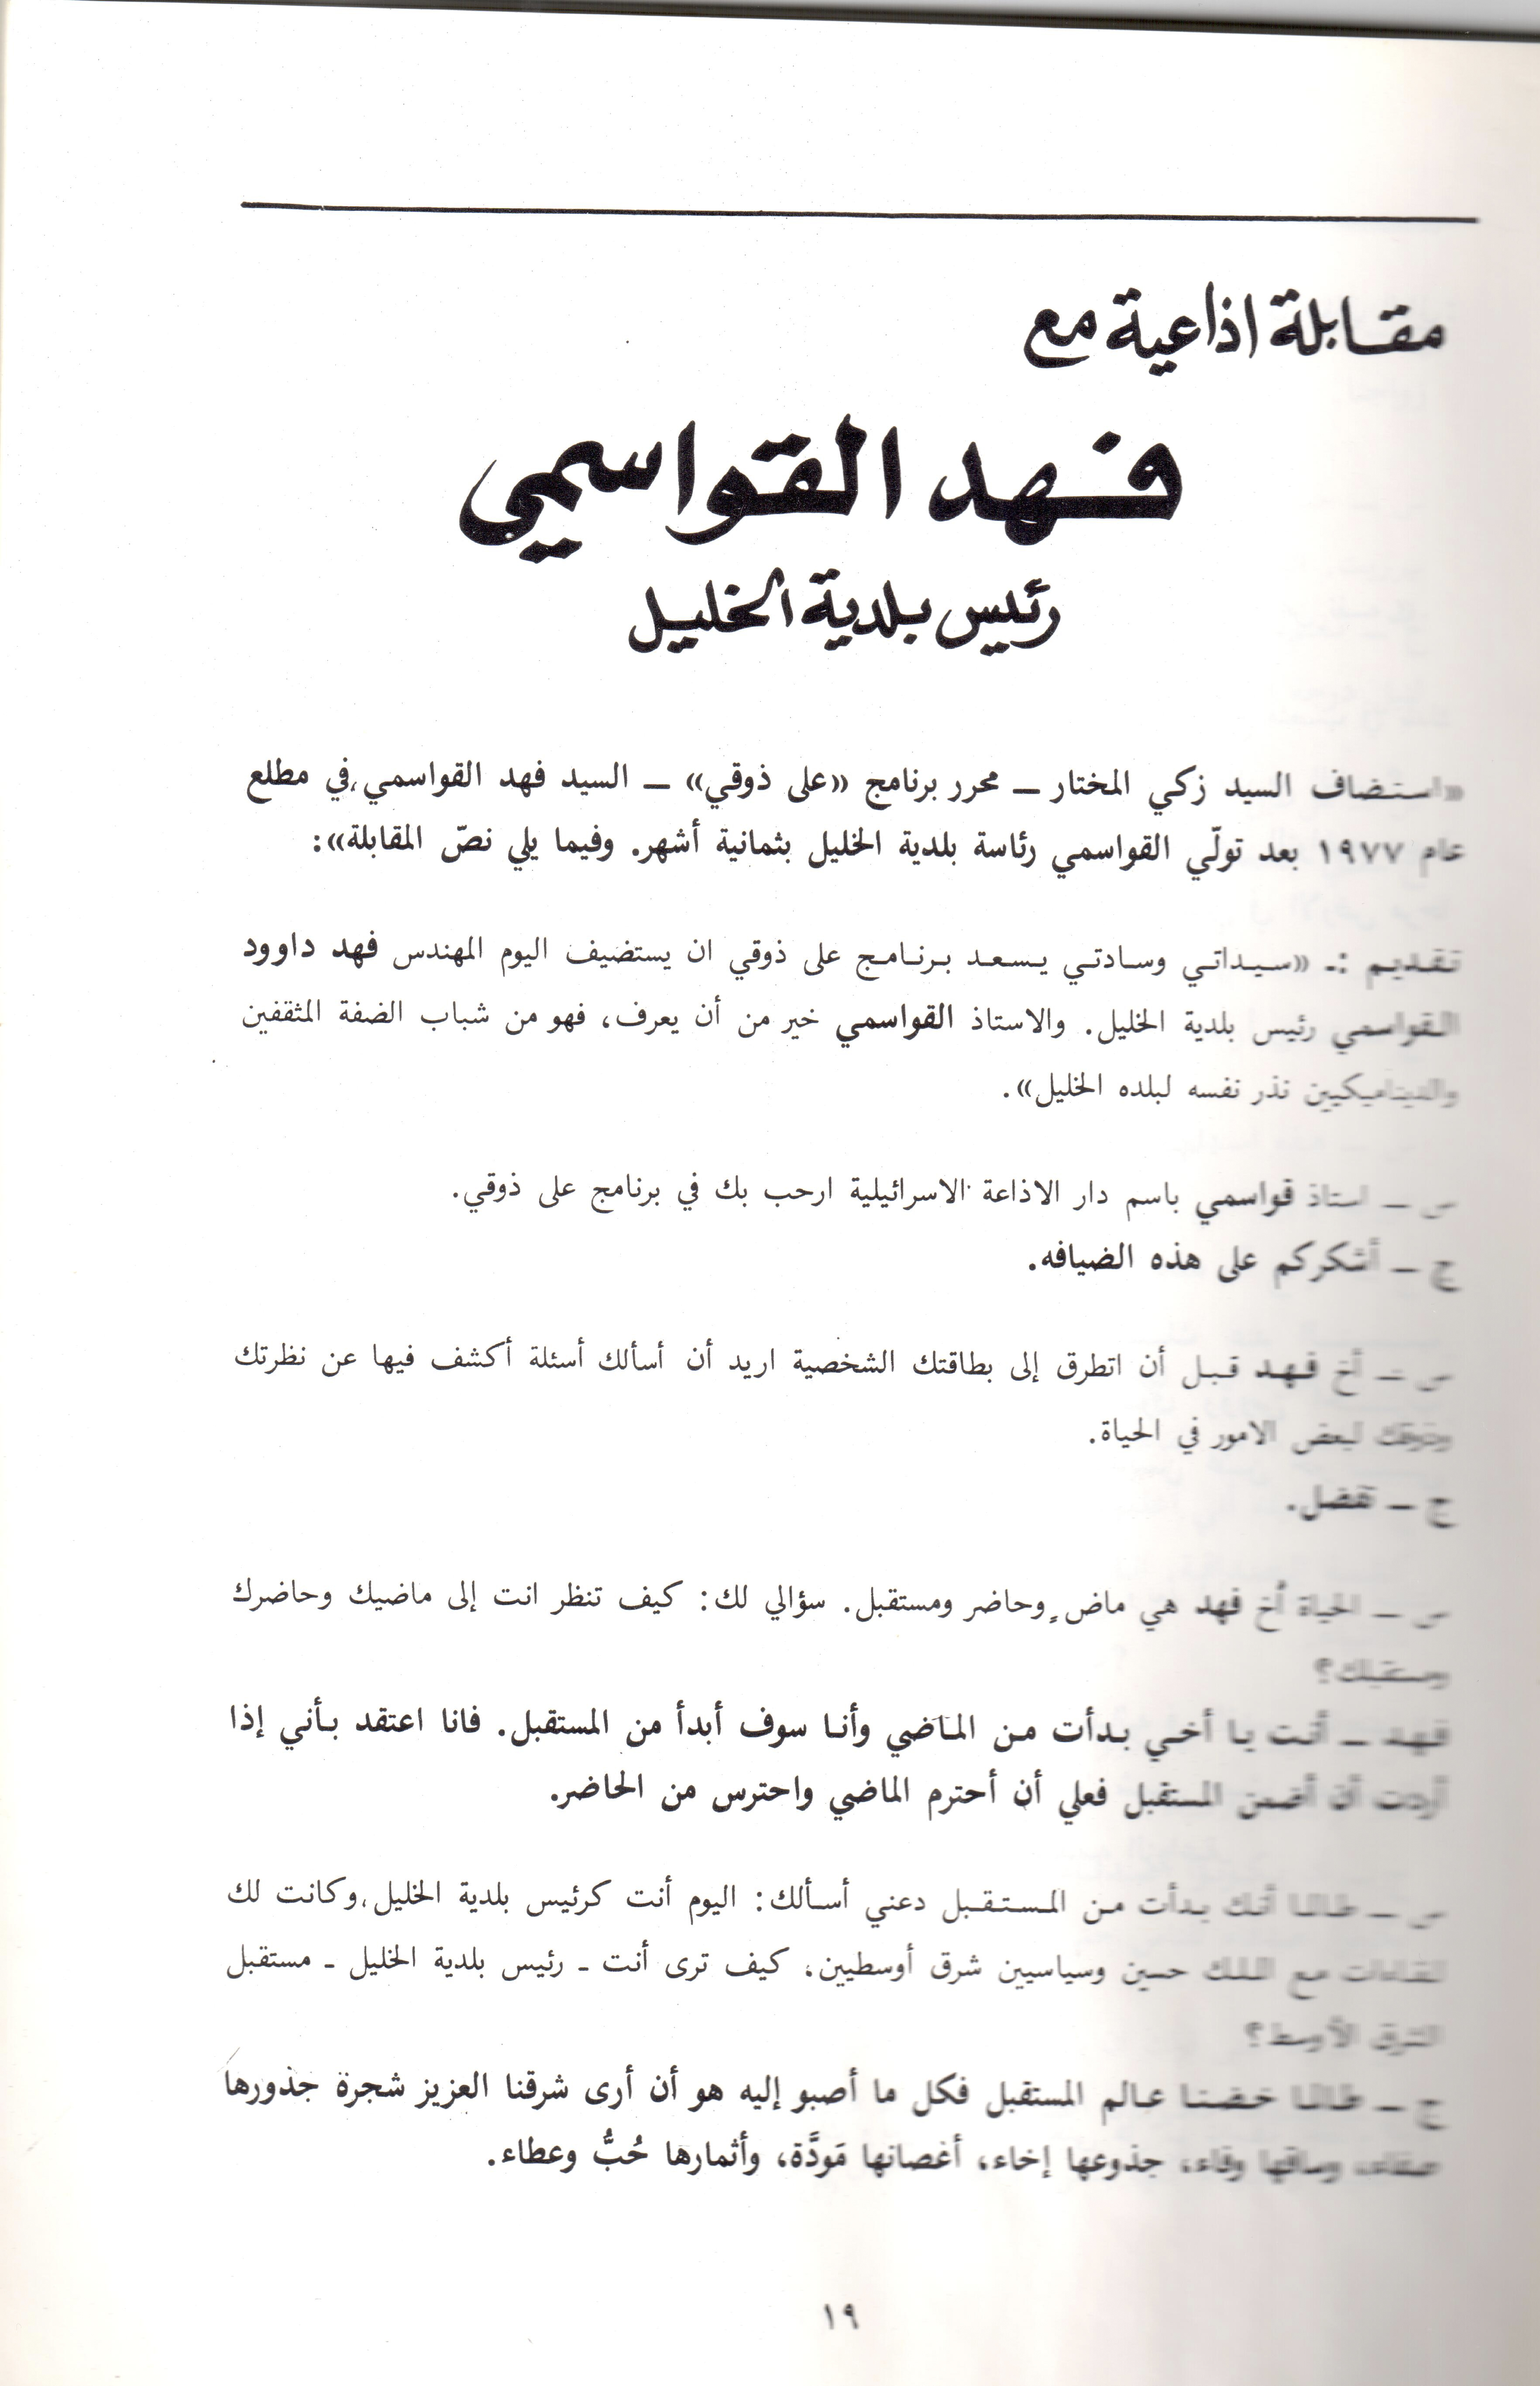 مقابلة اذاعية مع
فهد القواسمي
رئيس بلدية الخليل
«استضاف السيد زكي المختار — محرر برنامج «على ذوقي» — السيد فهد القواسمي، في مطلع
عام ١٩٧٧ بعد تولّي القواسمي رئاسة بلدية الخليل بثمانية أشهر. وفيما يلي نصّ المقابلة»:
تقديم :ـ «سيداتي وسادتي يسعد برنامج على ذوقي ان يستضيف اليوم المهندس فهد داوود
القواسمي رئيس بلدية الخليل. والاستاذ القواسمي خير من أن يعرف، فهو من شباب الضفة المثقفين
والديناميكيين نذر نفسه لبلده الخليل».
س — استاذ قواسمي باسم دار الاذاعة الاسرائيلية ارحب بك في برنامج على ذوقي.
ج — أشكركم على هذه الضيافه.
س — أخ فهد قبل أن اتطرق إلى بطاقتك الشخصية اريد أن أسألك أسئلة أكشف فيها عن نظرتك
وذوقك لبعض الامور في الحياة.
ج — تفضل.
س — الحياة أخ فهد هي ماضٍ وحاضر ومستقبل. سؤالي لك: كيف تنظر انت إلى ماضيك وحاضرك
ومستقبلك؟
فهد — أنت يا أخي بدأت من الماضي وأنا سوف أبدأ من المستقبل. فانا اعتقد بأني إذا
أردت أن أضمن المستقبل فعلي أن أحترم الماضي واحترس من الحاضر.
س — طالما أنك بدأت من المستقبل دعني أسألك: اليوم أنت كرئيس بلدية الخليل، وكانت لك
لقاءات مع الملك حسين وسياسيين شرق أوسطيين، كيف ترى أنت ـ رئيس بلدية الخليل ـ مستقبل
الشرق الأوسط؟
ج — طالما خضنا عالم المستقبل فكل ما أصبو إليه هو أن أرى شرقنا العزيز شجرة جذورها
صفاء، وساقها وفاء، جذوعها إخاء، أغصانها مَودَّة، وأثمارها حُبٌّ وعطاء.
١٩